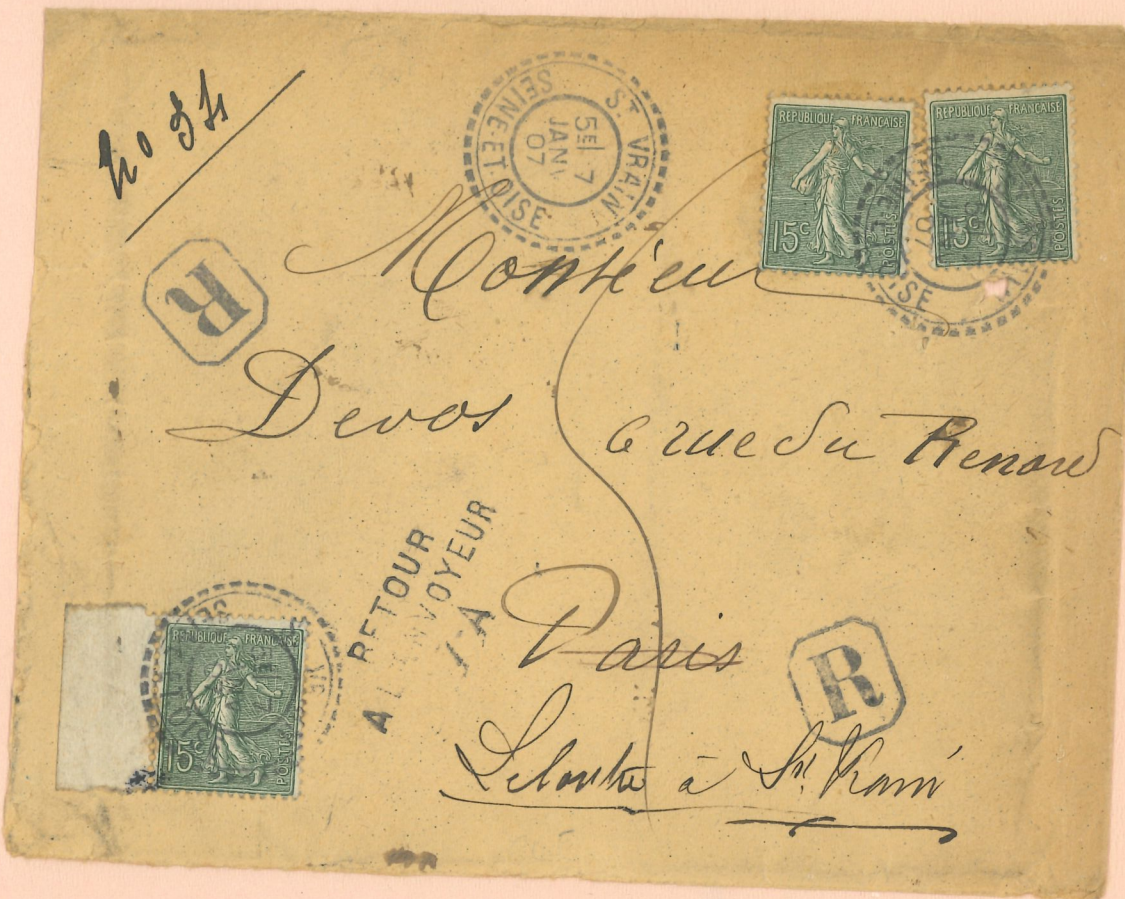 No 34
ST VRAIN
5E 7
JANV
07
SEINE-ET-OISE
REPUBLIQUE FRANÇAISE
15c
POSTES
REPUBLIQUE FRANÇAISE
15c
POSTES
R
Monsieur
Devos 6 rue du Renard
Paris
RETOUR
A L'ENVOYEUR
R
REPUBLIQUE FRANÇAISE
15c
POSTES
à St. Vrain